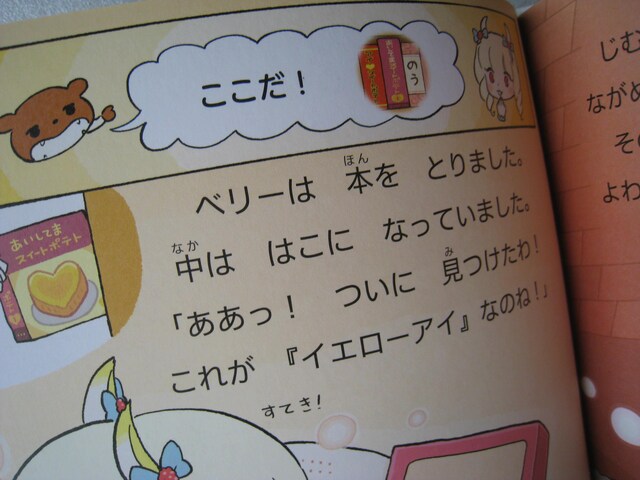 ここだ！
のう
ベリーは 本を とりました。
中は はこに なっていました。
「ああっ！ ついに 見つけたわ！
これが 『イエローアイ』なのね！」
あいしてま
スイートポテト
すてき！
じむ
ながめ
その
よわ